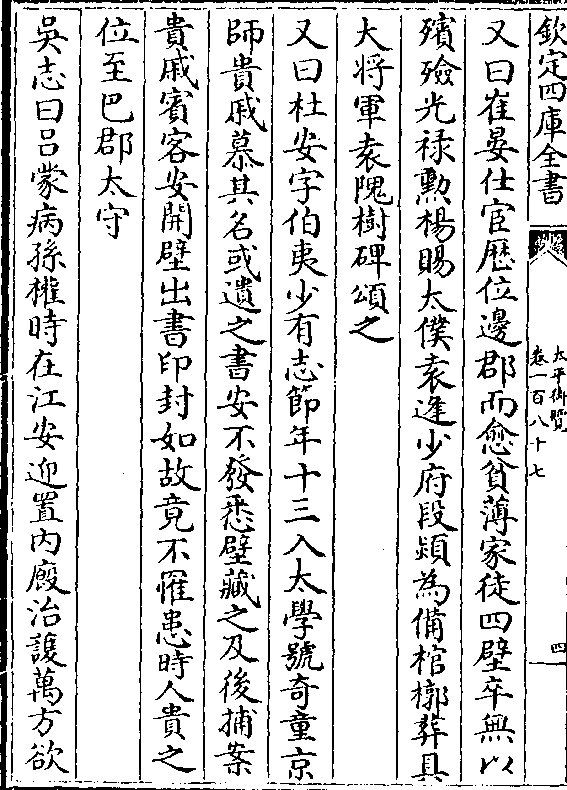 欽定四庫全書
太平御覽
卷一百八十七
四
又曰崔晏仕宦歴位邊郡而愈貧薄家徒四壁卒無以
殯殮光禄勲楊賜太僕袁逢少府段熲為備棺槨葬具
大將軍袁隗樹碑頌之
又曰杜安字伯夷少有志節年十三入太學號奇童京
師貴戚慕其名或遺之書安不發悉壁藏之及後捕案
貴戚賓客安開壁出書印封如故竟不罹患時人貴之
位至巴郡太守
吳志曰吕蒙病孫權時在江安迎置内廏治䕶萬方欲